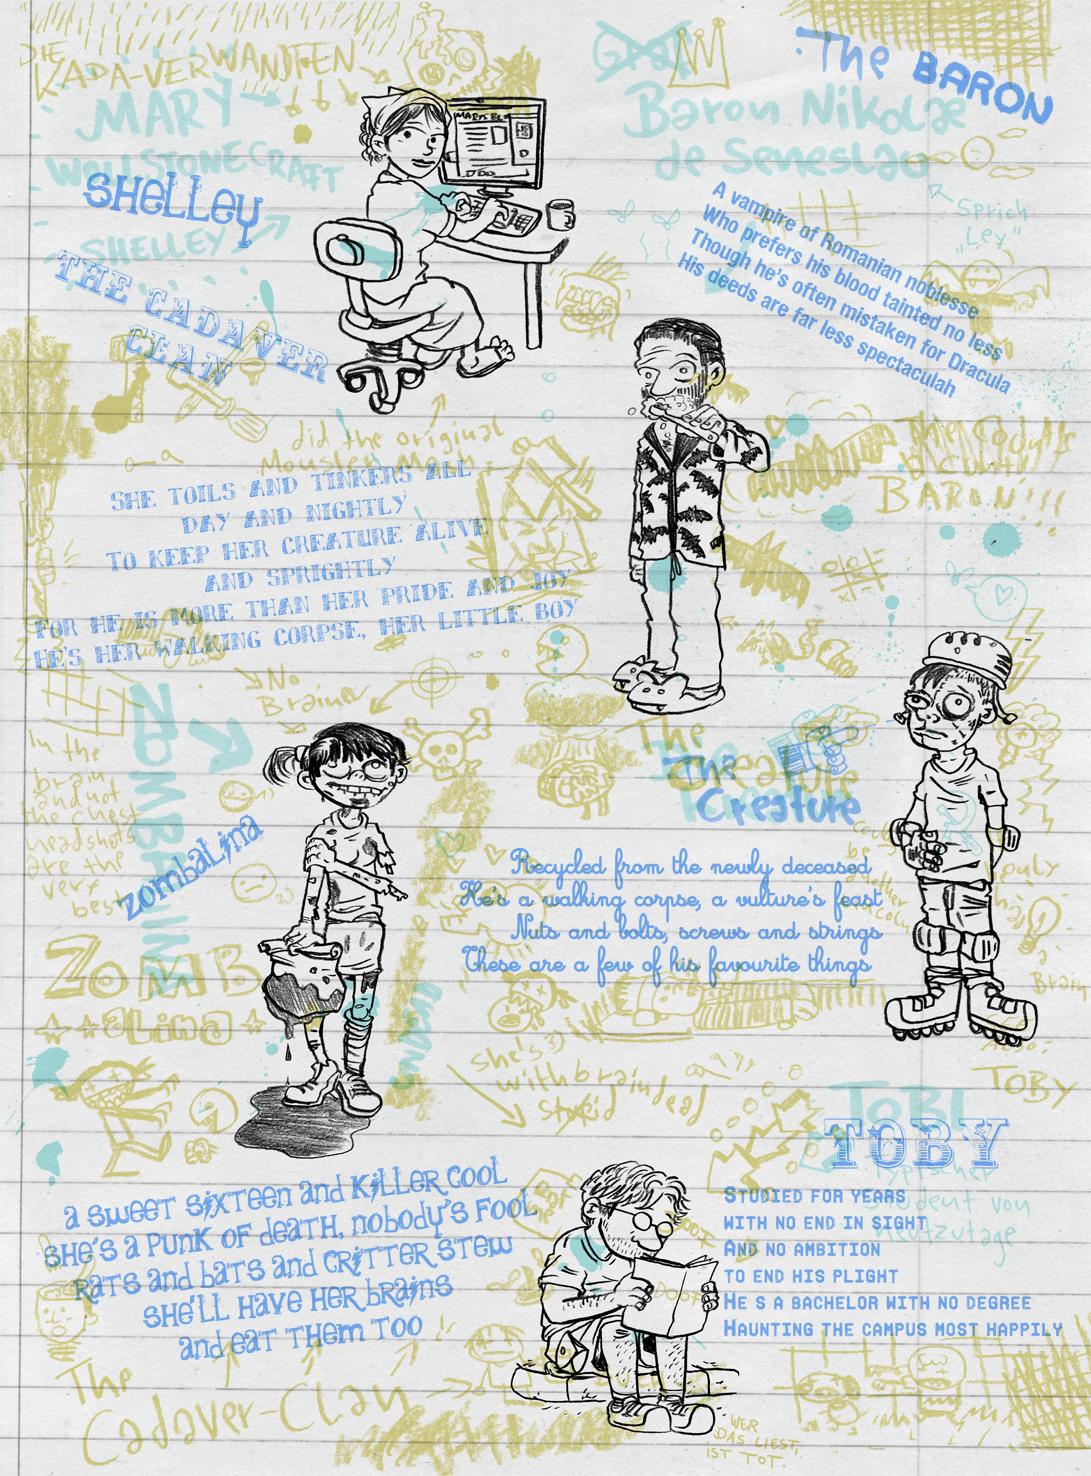 DIE
KADA-VERWANDTEN
MARY
WOLLSTONECRAFT
SHELLEY
SHELLEY
THE CADAVER
CLAN
MARYS BL
The BARON
Baron Nikolae
de Seneslav
A vampire of Romanian noblesse
Who prefers his blood tainted no less
Though he's often mistaken for Dracula
His deeds are far less spectaculah
Sprich
"Ley"
did the original
SHE TOILS AND TINKERS ALL
DAY AND NIGHTLY
TO KEEP HER CREATURE ALIVE
AND SPRIGHTLY
FOR HE IS MORE THAN HER PRIDE AND JOY
HE'S HER WALKING CORPSE, HER LITTLE BOY
BARON!!!
No
Brainer
In the
brain
and not
the chest
headshots
are the
very
best
ZOMBALINA
The
The
Creature
Recycled from the newly deceased
He's a walking corpse, a vulture's feast
Nuts and bolts, screws and strings
These are a few of his favourite things
ZOMB
alina
she's
with braindead
stupid
TOBY
TOBY
STUDIED FOR YEARS
WITH NO END IN SIGHT
AND NO AMBITION
TO END HIS PLIGHT
HE S A BACHELOR WITH NO DEGREE
HAUNTING THE CAMPUS MOST HAPPILY
Student von
heutzutage
a sweet sixteen and killer cool
she's a punk of death, nobody's fool
Rats and bats and critter stew
she'll have her brains
and eat them too
The
Cadaver-Clan
WER
DAS LIEST,
IST TOT.